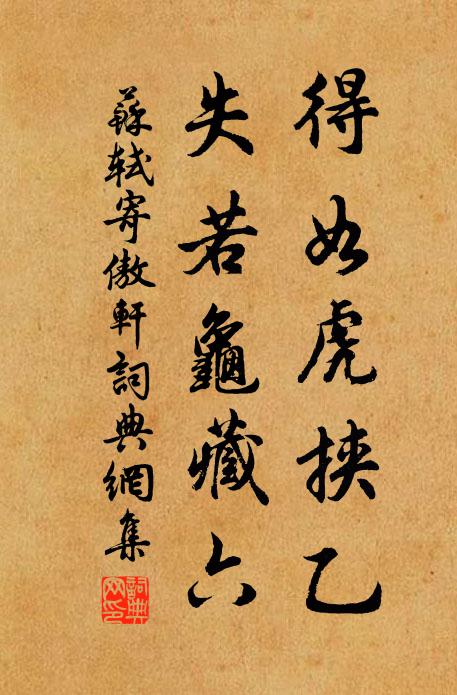 得如虎挾乙
失若龜藏六
蘇軾寄傲軒詞典網集
詞典网印